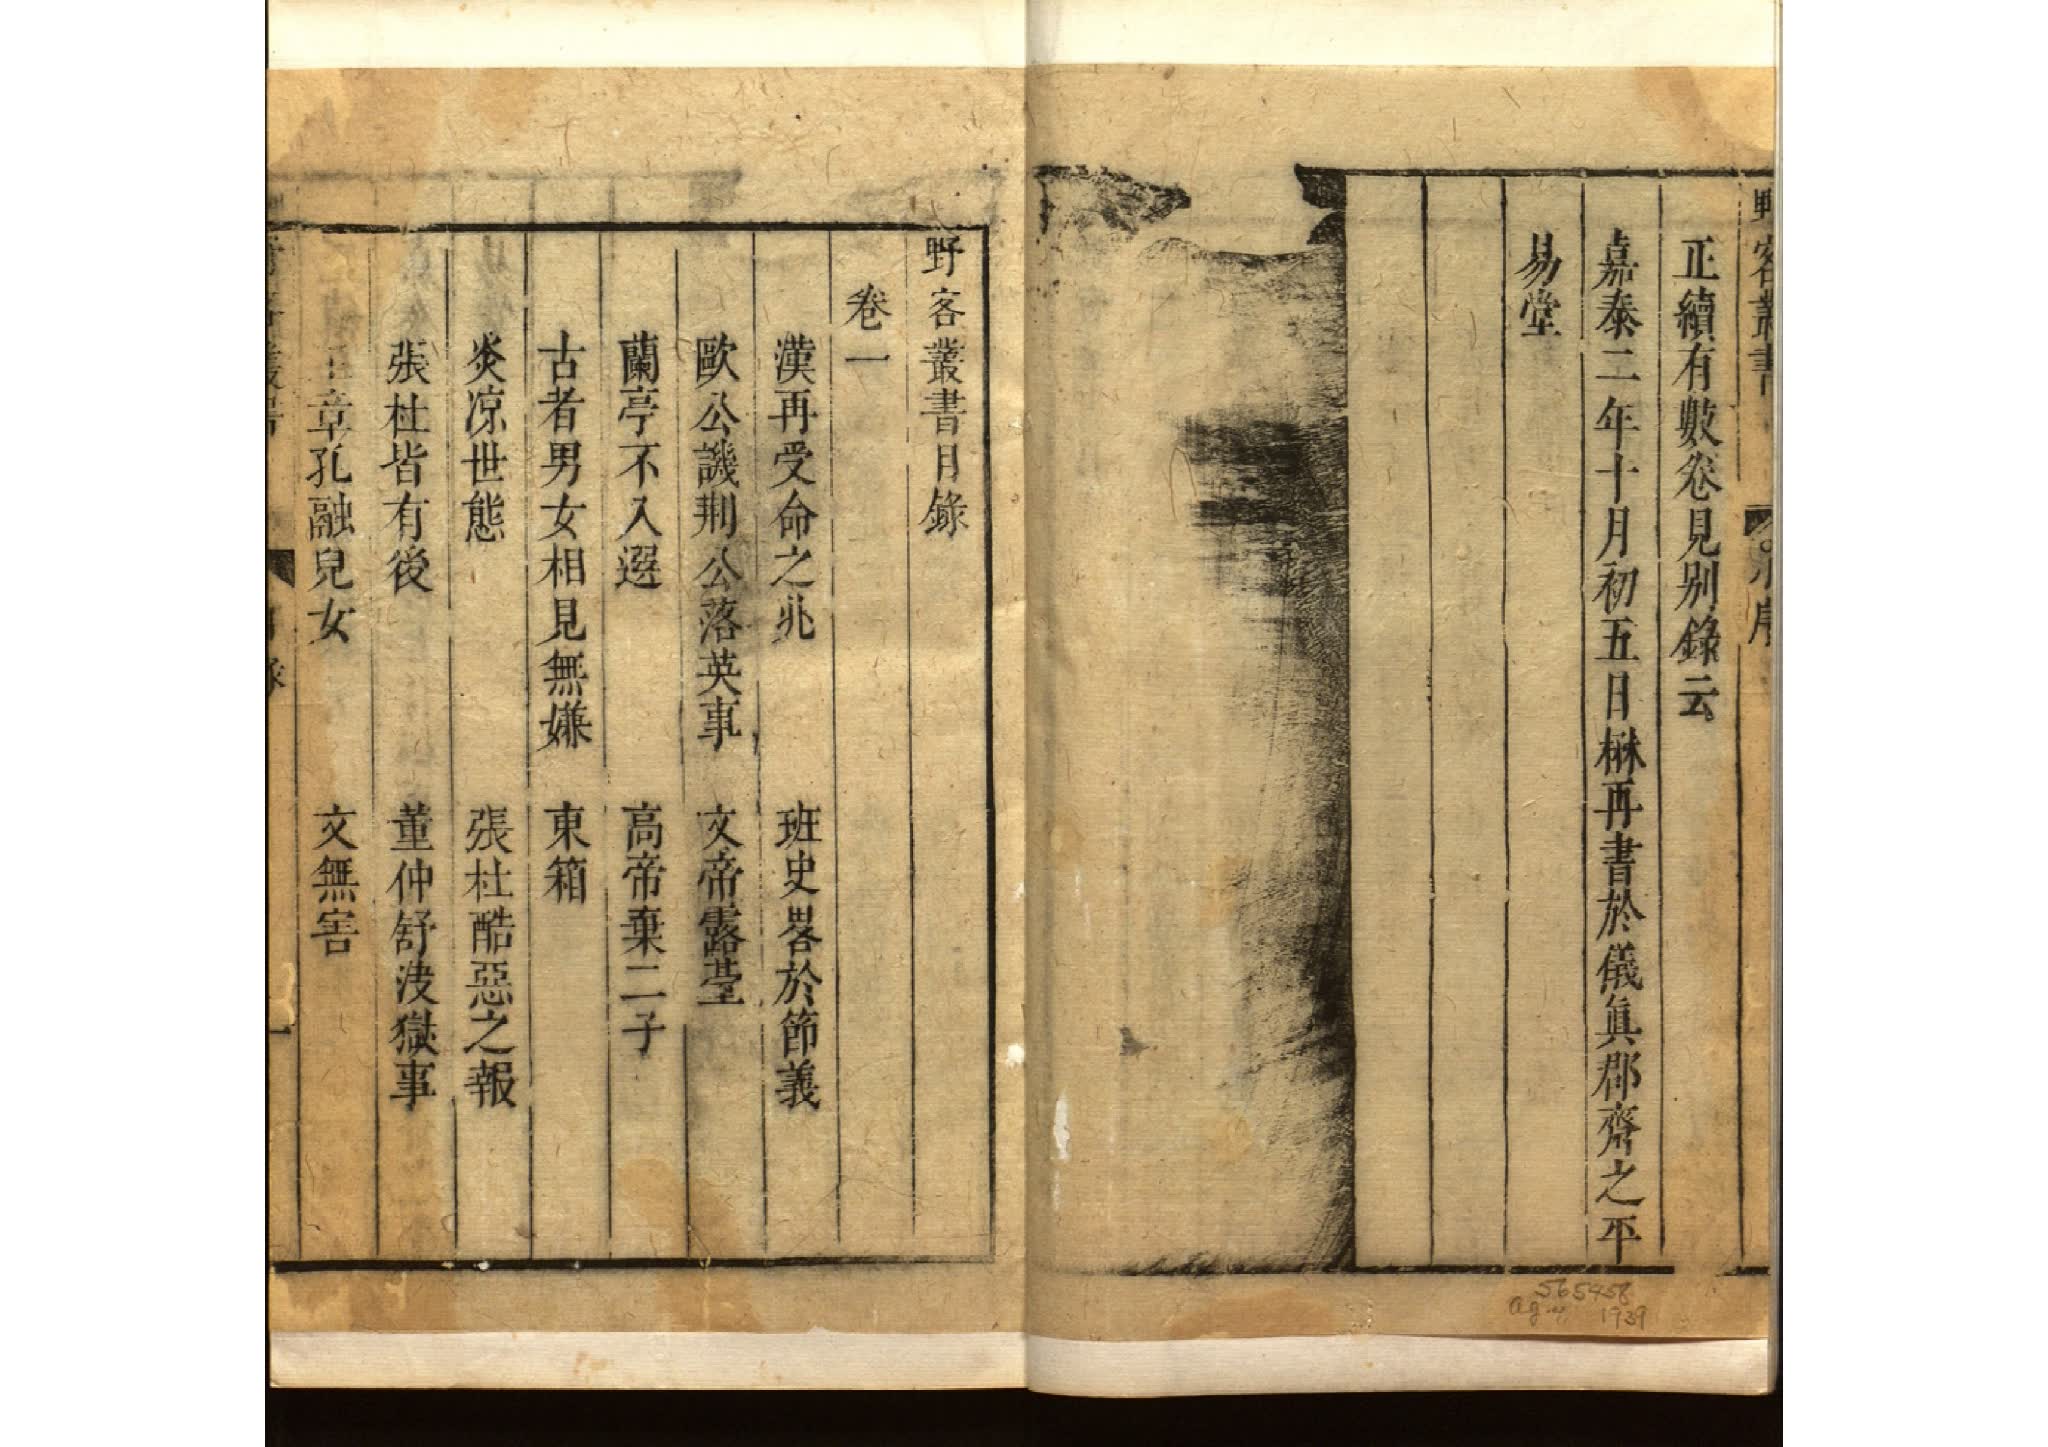 野客叢書
小序
正續有數卷見別錄云
嘉泰二年十月初五日楙再書於儀眞郡齋之平
易堂
565458
1939
野客叢書目錄
卷一
漢再受命之兆 班史畧於節義
歐公譏荆公落英事 文帝露䑓
蘭亭不入選 高帝棄二子
古者男女相見無嫌 東箱
炎凉世態 張杜酷惡之報
張杜皆有後 董仲舒決獄事
王章孔融兒女 文無害
目錄
一